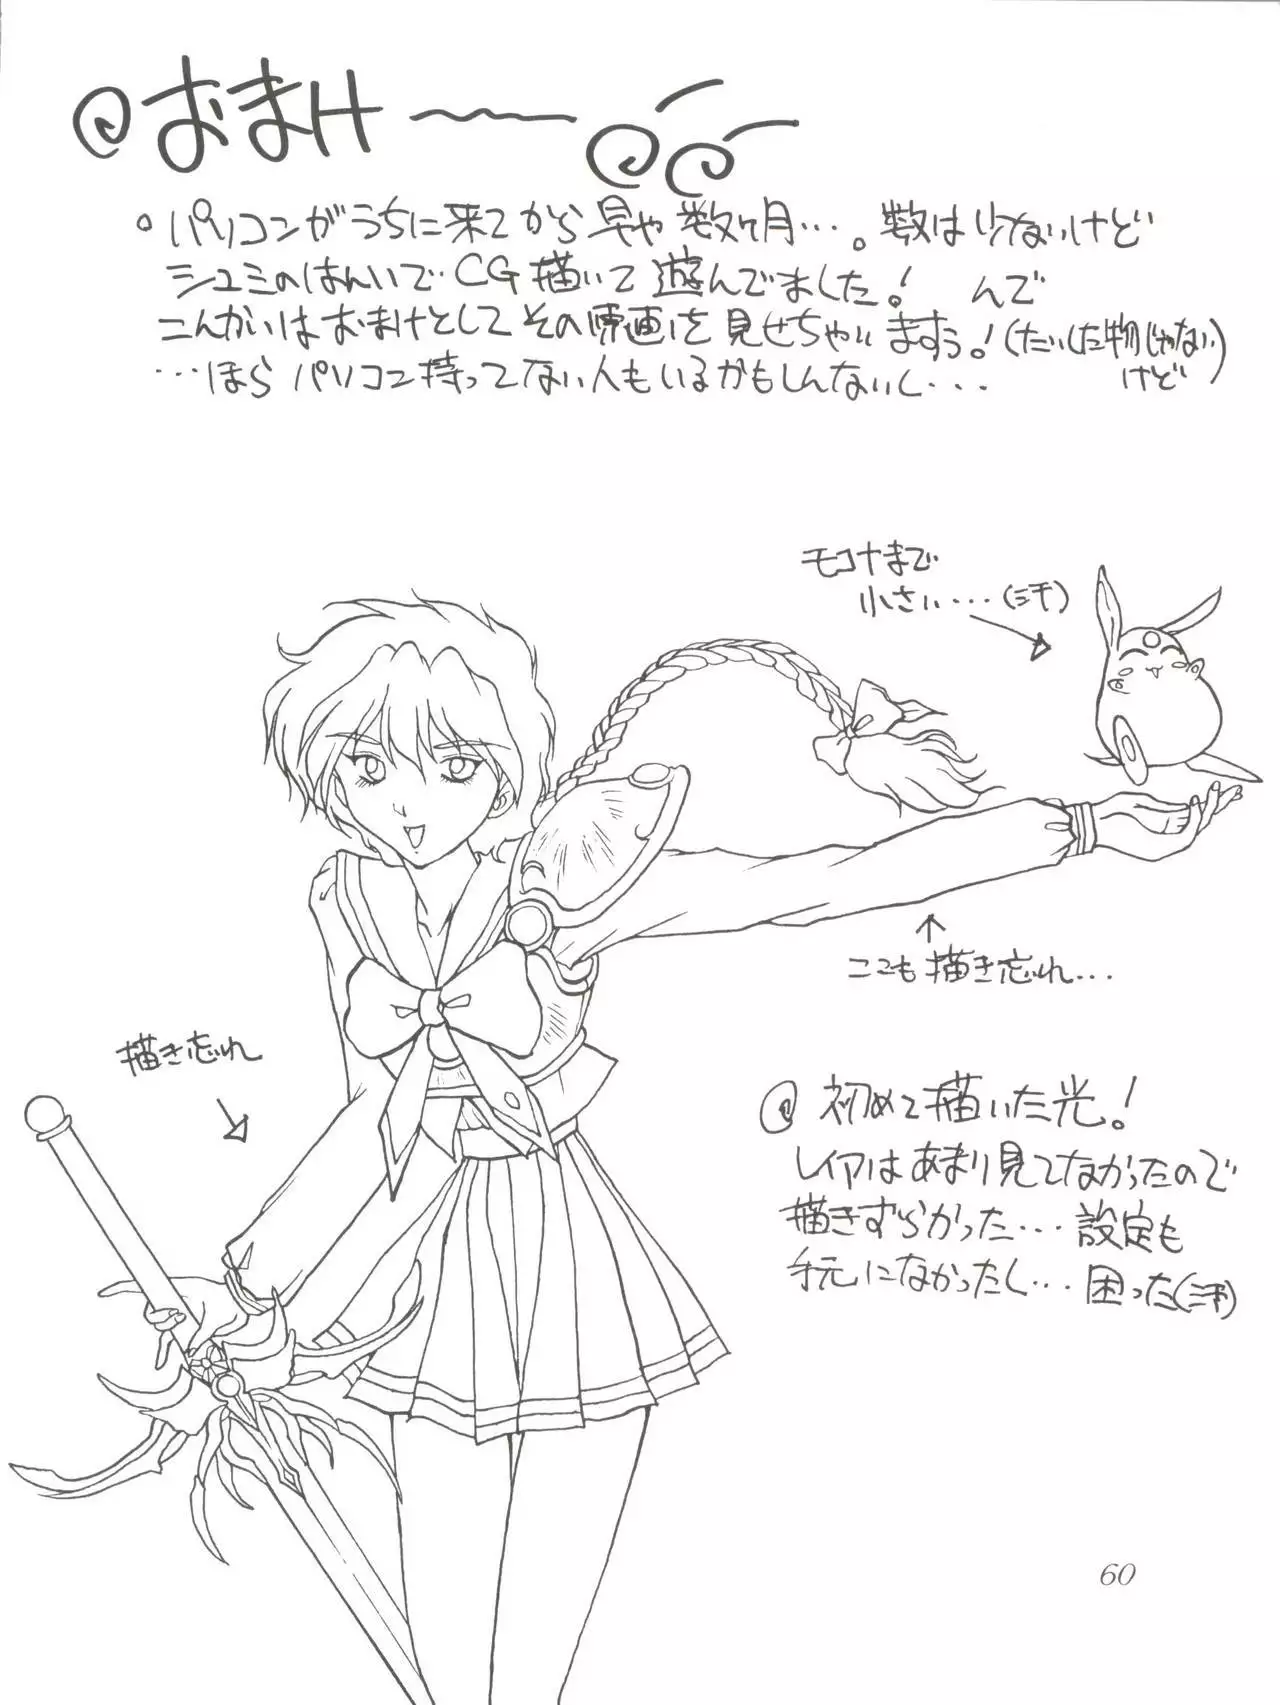 @おまけ〜〜
。パソコンがうちに来てから早や数ヶ月…。数は少ないけど
シュミのはんいでCG描いて遊んでました! んで
こんかいはおまけとしてその原画を見せちゃいますぅ!(たいした物じゃない
けど)
…ほらパソコン持ってない人もいるかもしんないし…
モコナまで
小さい…(汗)
ここも描き忘れ…
描き忘れ
@初めて描いた光!
レイアはあまり見てなかったので
描きずらかった…設定も
手元になかったし…困った(汗)
60